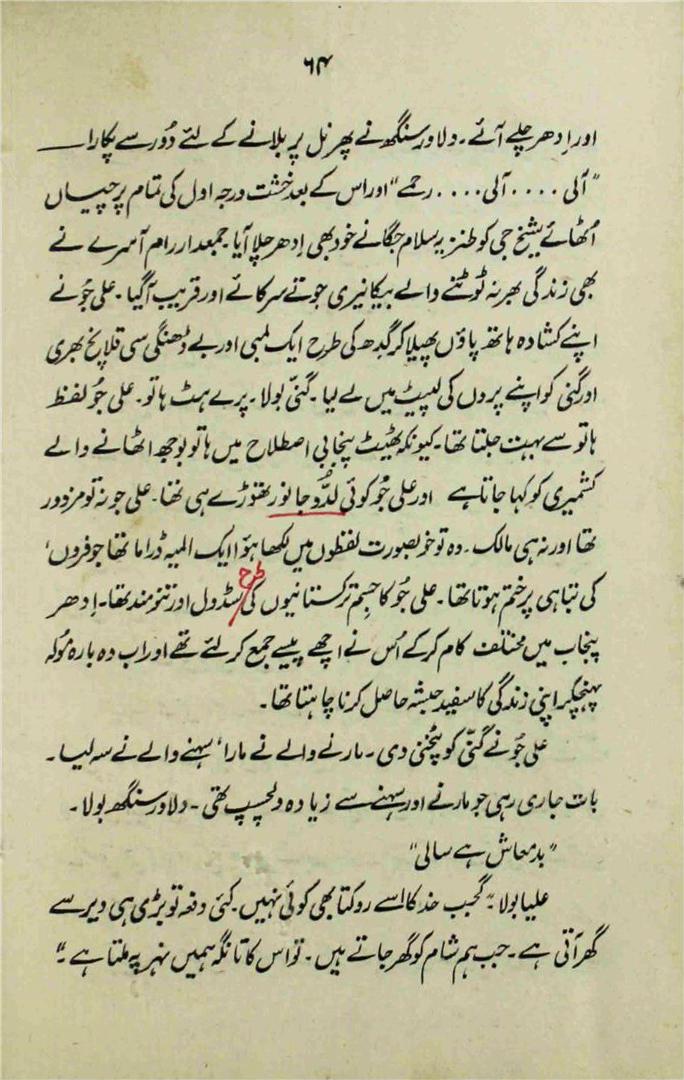 ۶۴
اور اِدھر چلے آئے۔ دلاور سنگھ نے پھر نل پر بلانے کے لئے دُور سے پکارا—
"آلی .... آلی .... رحمے" اور اس کے بعد خشت درجہ اول کی تمام پرچیاں
اُٹھائے شیخ جی کو طنزیہ سلام جگانے خود بھی اِدھر چلا آیا۔ جمعدار رام آسرے نے
بھی زندگی بھر نہ ٹوٹنے والے بیکانیری جوتے سرکائے اور قریب آگیا۔ علی جُو نے
اپنے کشادہ ہاتھ پاؤں پھیلا کر گِدھ کی طرح ایک لمبی اور بے ڈھنگی سی قلانچ بھری
اور گنی کو اپنے پروں کی لپیٹ میں لے لیا۔ گنّی بولا۔ پرے ہٹ ہاتو۔ علی جُو لفظ
ہاتو سے بہت جلتا تھا۔ کیونکہ ٹھیٹ پنجابی اصطلاح میں ہاتو بوجھ اٹھانے والے
کشمیری کو کہا جاتا ہے اور علی جُو کوئی لدُّو جانور تھوڑے ہی تھا۔ علی جو نہ تو مزدور
تھا اور نہ ہی مالک۔ وہ تو خوبصورت لفظوں میں لکھا ہوّا ایک المیہ ڈراما تھا جو فروں'
کی تباہی پر ختم ہوتا تھا۔ علی جُو کا جسم ترکستانیوں کی طرح سڈول اور تنومند تھا۔ اِدھر
پنجاب میں مختلف کام کر کے اُس نے اچھے پیسے جمع کر لئے تھے اور اب وہ بارہ مُولہ
پہنچکر اپنی زندگی کا سفید حبشہ حاصل کرنا چاہتا تھا۔
علی جُو نے گنّی کو پٹخنی دی۔ مارنے والے نے مارا' سہنے والے نے سہ لیا۔
بات جاری رہی جو مارنے اور سہنے سے زیادہ دلچسپ تھی۔ دلاور سنگھ بولا۔
"بدمعاش ہے سالی"
علیا بولا۔ "گجب خدا کا اسے روکتا بھی کوئی نہیں۔ کئی دفعہ تو بڑی ہی دیر سے
گھر آتی ہے۔ جب ہم شام کو گھر جاتے ہیں۔ تو اس کا تانگہ ہمیں نہر پہ ملتا ہے۔"